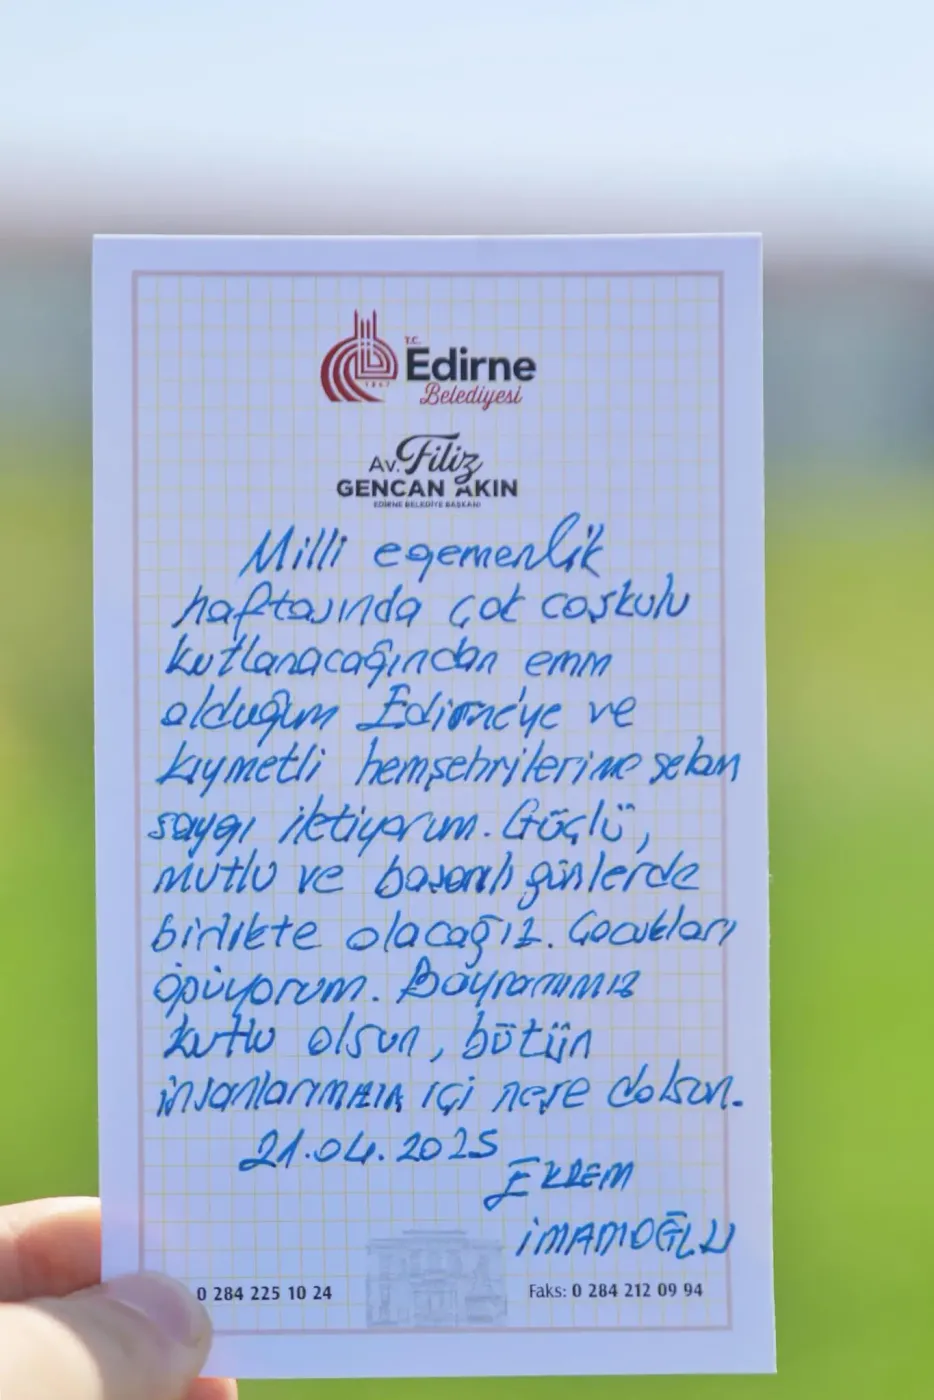 T.C.
Edirne
Belediyesi
1867
Av. Filiz
GENCAN AKIN
EDİRNE BELEDİYE BAŞKANI
Milli egemenlik
haftasında çok coşkulu
kutlanacağından emin
olduğum Edirne'ye ve
kıymetli hemşehrilerime selam
saygı iletiyorum. Güçlü,
mutlu ve başarılı günlerde
birlikte olacağız. Çocukları
öpüyorum. Bayramımız
kutlu olsun, bütün
insanlarımızın içi neşe dolsun.
21.04.2025
EKREM
İMAMOĞLU
0 284 225 10 24
Faks: 0 284 212 09 94